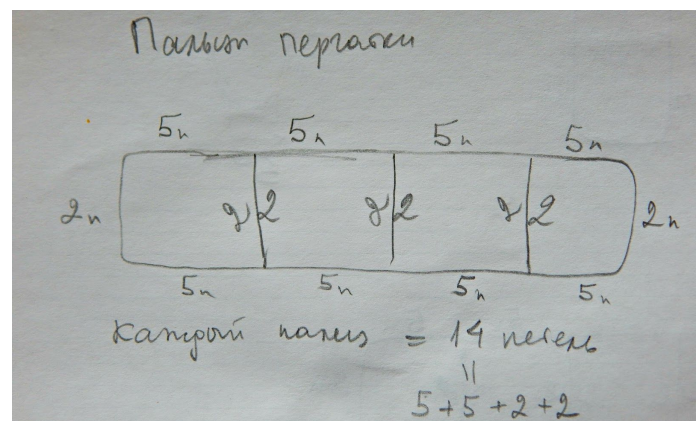 Пальцы перчатки
5п 5п 5п 5п
2п 2 2 2 2 2 2 2п
5п 5п 5п 5п
Каждый палец = 14 петель
=
5+5+2+2